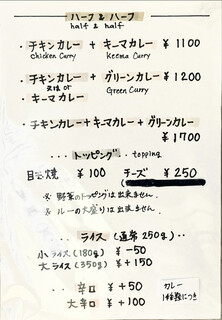 ハーフ & ハーフ
half & half
・チキンカレー + キーマカレー ¥1100
Chicken Curry Keema Curry
・チキンカレー + グリーンカレー ¥1200
又は or Green Curry
・キーマカレー
・チキンカレー+キーマカレー+グリーンカレー
¥1700
... トッピング ... topping
目玉焼 ¥100 チーズ ¥250
※ 野菜のトッピングは出来ません。
※ ルーの大盛りは出来ません。
... ライス (通常 250g) ...
小ライス (180g) ¥-50
大ライス (350g) ¥+150
辛口 ¥+50
大辛口 ¥+100
カレー
1種類につき